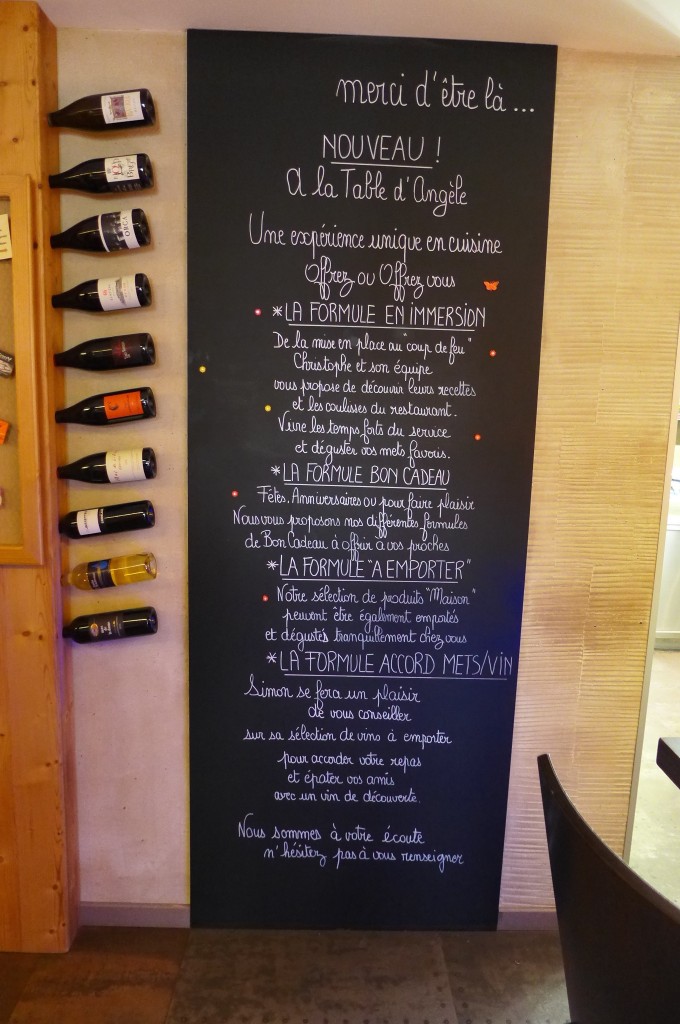 merci d'être là ...
NOUVEAU !
A la Table d'Angèle
Une expérience unique en cuisine
Offrez ou Offrez vous
*LA FORMULE EN IMMERSION
De la mise en place au "coup de feu"
Christophe et son équipe
vous propose de découvrir leurs recettes
et les coulisses du restaurant.
Vivre les temps forts du service
et déguster vos mets favoris.
*LA FORMULE BON CADEAU
Fêtes, Anniversaires ou pour faire plaisir
Nous vous proposons nos différentes formules
de Bon Cadeau à offrir à vos proches
*LA FORMULE "A EMPORTER"
Notre sélection de produits "Maison"
peuvent être également emportés
et dégustés tranquillement chez vous
*LA FORMULE ACCORD METS/VIN
Simon se fera un plaisir
de vous conseiller
sur sa sélection de vins à emporter
pour accorder votre repas
et épater vos amis
avec un vin de découverte.
Nous sommes à votre écoute
n'hésitez pas à vous renseigner
ORCA